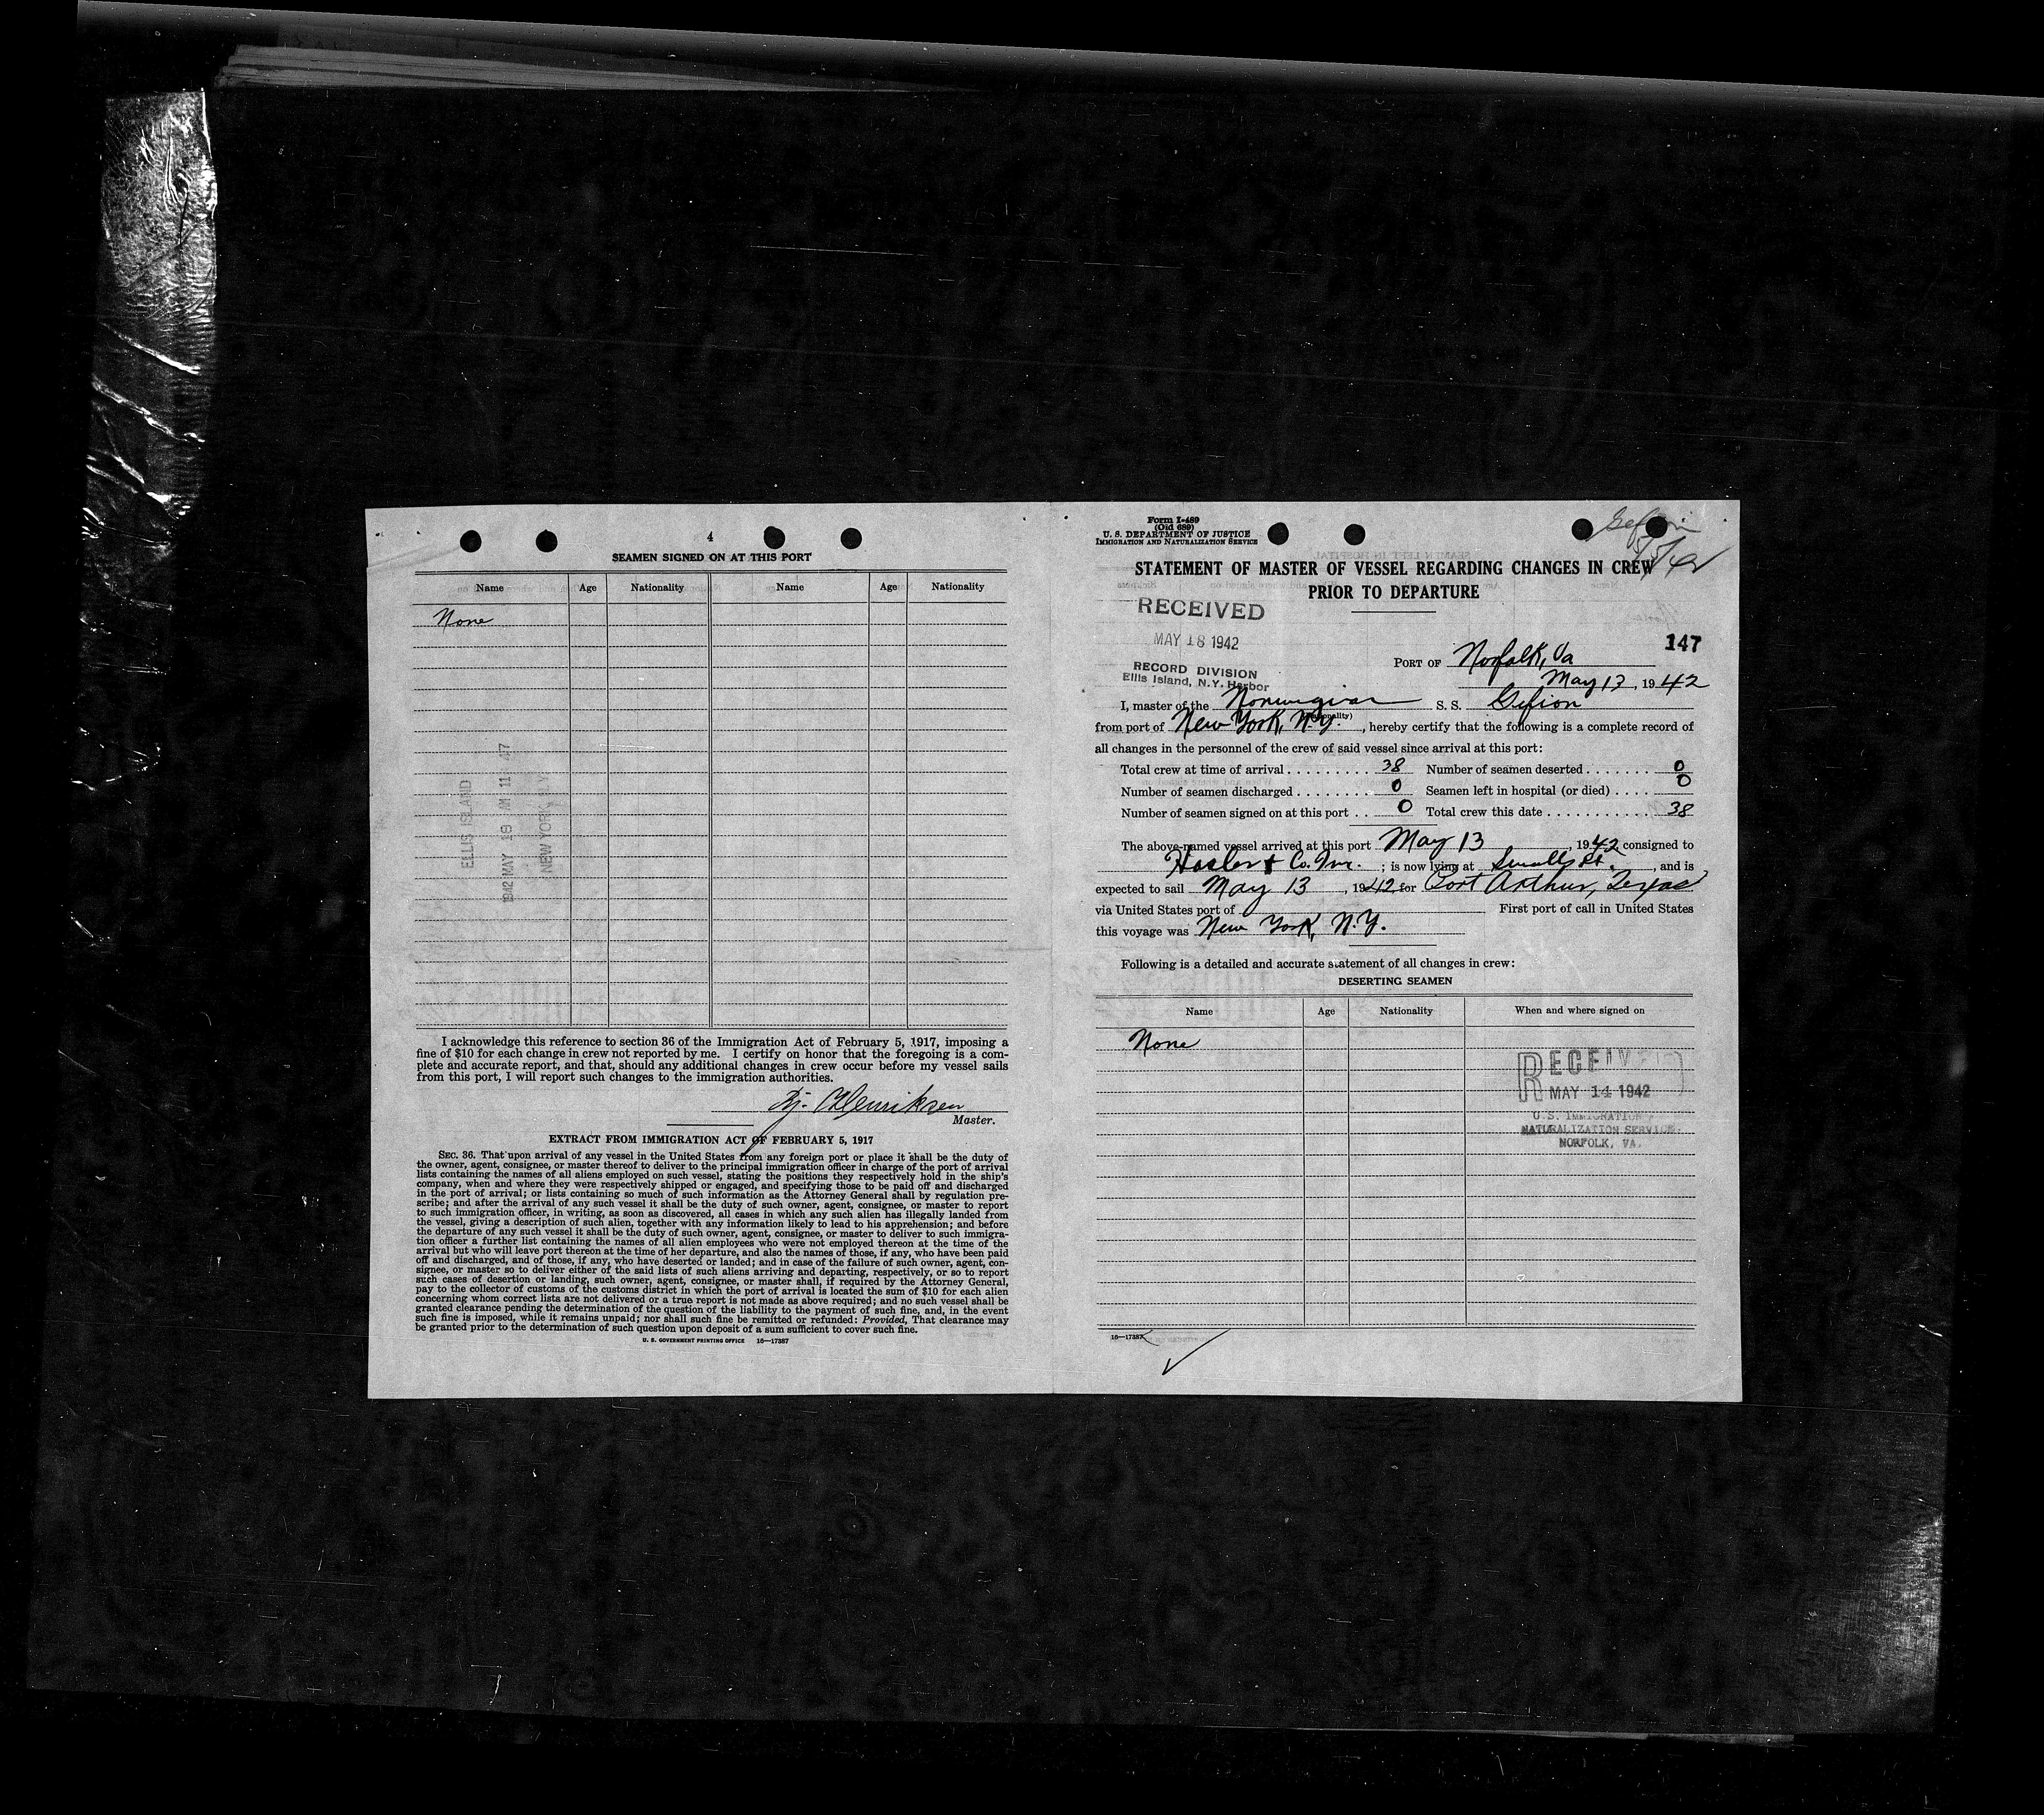 4
SEAMEN SIGNED ON AT THIS PORT
Name Age Nationality Name Age Nationality
None
ELLIS ISLAND
1942 MAY 18 AM 11 47
NEW YORK, N.Y.
I acknowledge this reference to section 36 of the Immigration Act of February 5, 1917, imposing a
fine of $10 for each change in crew not reported by me. I certify on honor that the foregoing is a com-
plete and accurate report, and that, should any additional changes in crew occur before my vessel sails
from this port, I will report such changes to the immigration authorities.
Henriksen
Master.
EXTRACT FROM IMMIGRATION ACT OF FEBRUARY 5, 1917
SEC. 36. That upon arrival of any vessel in the United States from any foreign port or place it shall be the duty of
the owner, agent, consignee, or master thereof to deliver to the principal immigration officer in charge of the port of arrival
lists containing the names of all aliens employed on such vessel, stating the positions they respectively hold in the ship's
company, when and where they were respectively shipped or engaged, and specifying those to be paid off and discharged
in the port of arrival; or lists containing so much of such information as the Attorney General shall by regulation pre-
scribe; and after the arrival of any such vessel it shall be the duty of such owner, agent, consignee, or master to report
to such immigration officer, in writing, as soon as discovered, all cases in which any such alien has illegally landed from
the vessel, giving a description of such alien, together with any information likely to lead to his apprehension; and before
the departure of any such vessel it shall be the duty of such owner, agent, consignee, or master to deliver to such immigra-
tion officer a further list containing the names of all alien employees who were not employed thereon at the time of the
arrival but who will leave port thereon at the time of her departure, and also the names of those, if any, who have been paid
off and discharged, and of those, if any, who have deserted or landed; and in case of the failure of such owner, agent, con-
signee, or master so to deliver either of the said lists of such aliens arriving and departing, respectively, or so to report
such cases of desertion or landing, such owner, agent, consignee, or master shall, if required by the Attorney General,
pay to the collector of customs of the customs district in which the port of arrival is located the sum of $10 for each alien
concerning whom correct lists are not delivered or a true report is not made as above required; and no such vessel shall be
granted clearance pending the determination of the question of the liability to the payment of such fine, and, in the event
such fine is imposed, while it remains unpaid; nor shall such fine be remitted or refunded: Provided, That clearance may
be granted prior to the determination of such question upon deposit of a sum sufficient to cover such fine.
U. S. GOVERNMENT PRINTING OFFICE 16—17387
Form I-489
(Old 689)
U. S. DEPARTMENT OF JUSTICE
IMMIGRATION AND NATURALIZATION SERVICE
Gefion
STATEMENT OF MASTER OF VESSEL REGARDING CHANGES IN CREW
PRIOR TO DEPARTURE
RECEIVED
MAY 18 1942
RECORD DIVISION
Ellis Island, N.Y. Harbor
147
PORT OF Norfolk, Va
May 13, 1942
I, master of the Norwegian S. S. Gefion
(Nationality)
from port of New York, N.Y., hereby certify that the following is a complete record of
all changes in the personnel of the crew of said vessel since arrival at this port:
Total crew at time of arrival 38 Number of seamen deserted 0
Number of seamen discharged 0 Seamen left in hospital (or died) 0
Number of seamen signed on at this port 0 Total crew this date 38
The above-named vessel arrived at this port May 13, 1942, consigned to
Hasler & Co. Inc.; is now lying at Smalls Pt., and is
expected to sail May 13, 1942, for Port Arthur, Texas
via United States port of First port of call in United States
this voyage was New York, N.Y.
Following is a detailed and accurate statement of all changes in crew:
DESERTING SEAMEN
Name Age Nationality When and where signed on
None
RECEIVED
MAY 14 1942
U.S. IMMIGRATION &
NATURALIZATION SERVICE
NORFOLK, VA.
16—17387